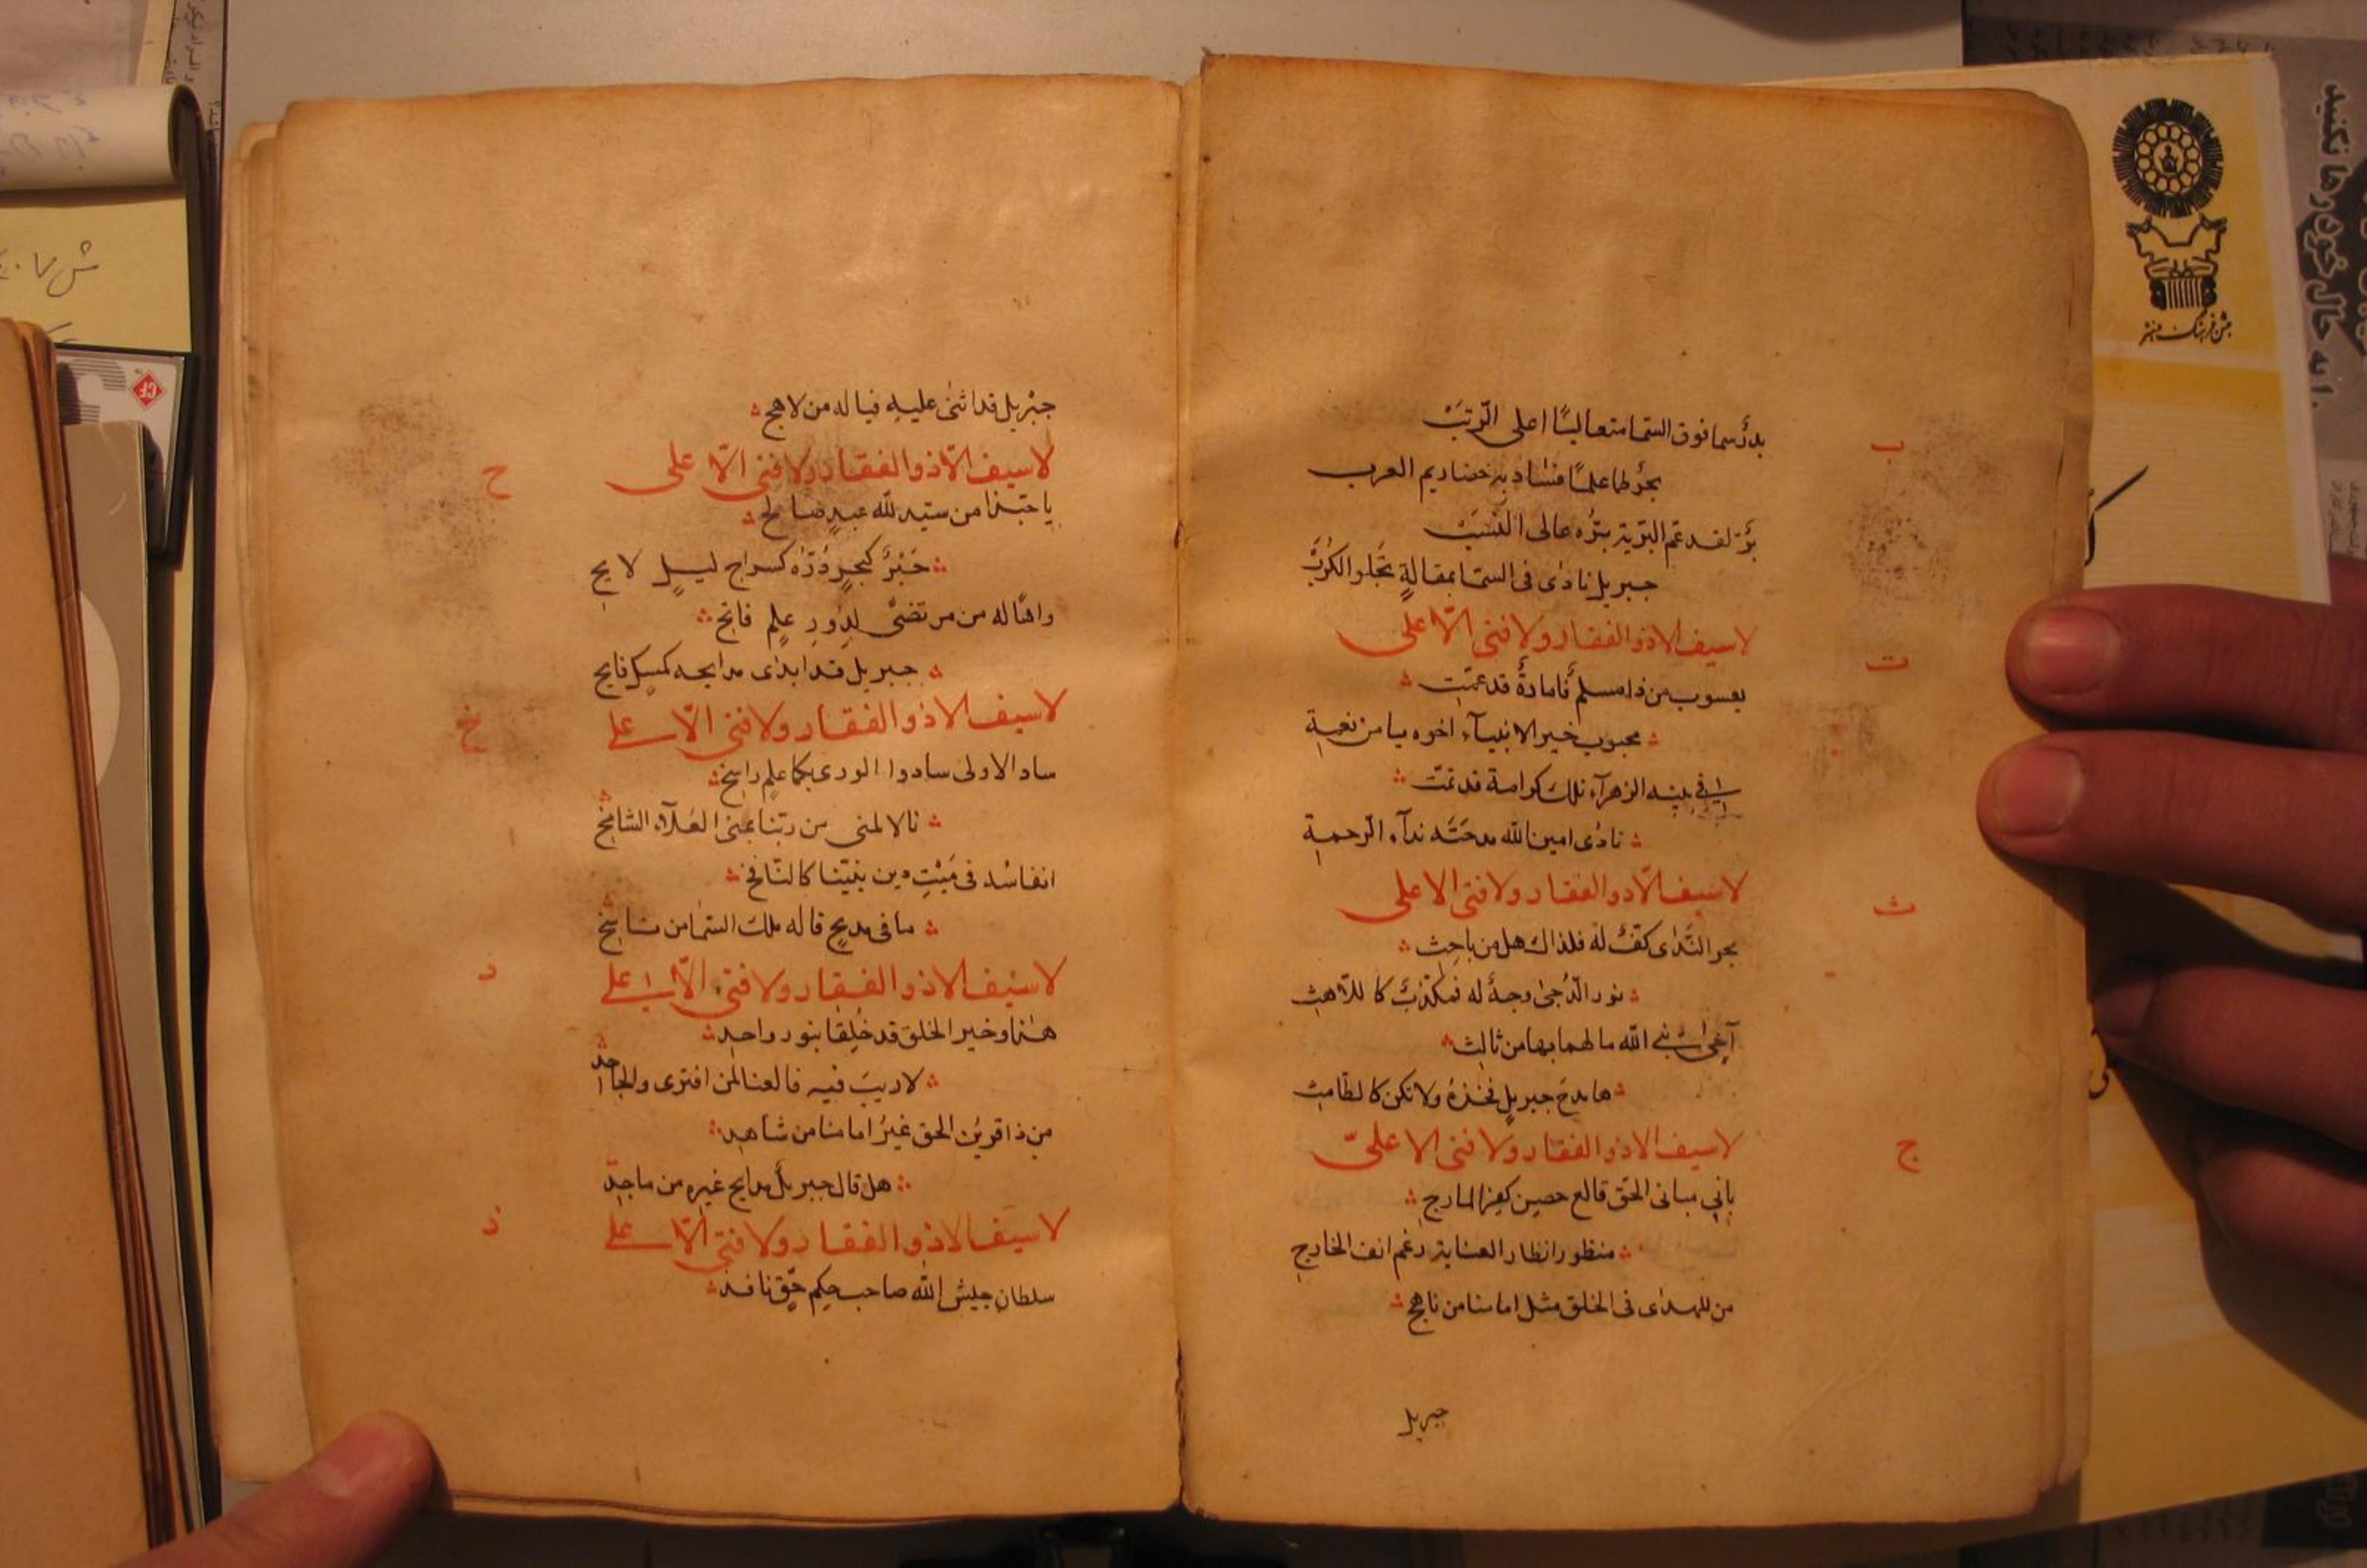 ب
بدرٌ سما فوق السّما متعاليًا اعلى الرّتبْ
بحرٌ طما علمًا فساد به خضاديم العرب
برٌّ لقد عمّ البريّة برّه عالى النسبْ
جبريل نادى فى السمّا بمقالةٍ تجلو الكُرَبْ
ت
لا سيف الا ذو الفقار ولا فتى الّا على
يعسوب من ذا مسلم قامادةٌ قد عمّت
محبوب خير الانبياۤء اخوه يا من نعمة
فى بيته الزهراۤء تلك كرامة قد تمّت
نادى امين الله مدحته نداۤء الرحمة
ث
لا سيف الّا ذو الفقار ولا فتى الا على
بحر النَّدى كفٌّ له فلذاك هل من باحِث
نور الدُّجى وجهٌ له فمكذّبٌ كاللّاهث
آخى نبى الله ما لهما بها من ثالث
ها مدح جبريلٍ فخذهُ ولا تكن كالطّامث
ج
لا سيف الا ذو الفقار ولا فتى الا علىّ
بانى مبانى الحق قالع حصين كفر المارج
منظور انظار العناية رغم انف الخارج
من للهدى فى الخلق مثل امامنا من ناهج
جبريل
جبْريل قد اثنى عليهِ فيا له من لاهج
ح
لا سيف الّا ذو الفقار ولا فتى الّا على
يا حبّذا من سيّد لله عبدٍ صالح
حَبْرٌ كبحرٍ دُرّه كسراج ليلٍ لايح
واهًا له من مرتضىً لدور علمٍ فاتح
جبريل قد ابدى مدايحه كمسكٍ فايح
خ
لا سيف الا ذو الفقار ولا فتى الّا على
ساد الاولى سادوا الورى بكما علمٍ راسخ
نال المنى من ربّنا بمنى العُلاۤء الشامخ
انفاسُه فى مَيْتِ دين نبيّنا كالنّافخ
ما فى مديحٍ قاله ملك السمٰا من ناسخ
د
لا سيف الا ذو الفقار ولا فتى الّا على
هٰذا وخير الخلق قد خُلِقا بنور واحد
لا ريبَ فيه فالعنا لمن افترى والجاحد
من ذا قرين الحق غيرُ امامنا من شاهد
هل قال جبريلٌ مدايح غيره من ماجد
ذ
لا سيف الا ذو الفقار ولا فتى الّا على
سلطان جيش الله صاحب حكم حقّ نافذ
جشن فرهنگ و هنر